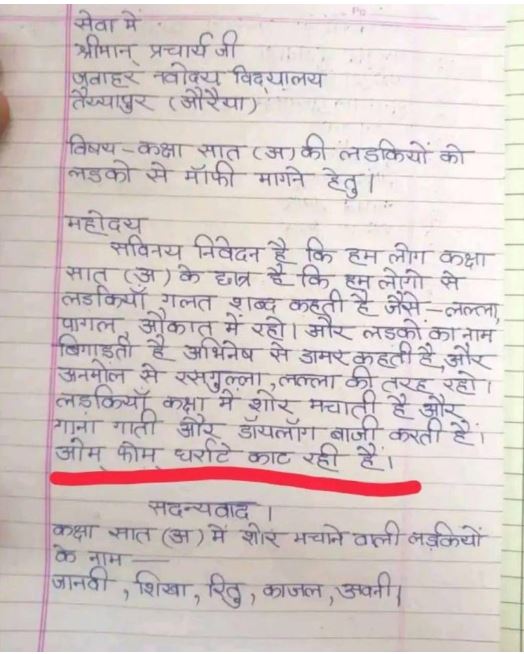 सेवा में
श्रीमान् प्रचार्य जी
जवाहर नवोदय विद्यालय
तैय्यापुर (औरैया)
विषय - कक्षा सात (अ) की लडकियों को
लडको से माँफी मागने हेतु।
महोदय
सविनय निवेदन है कि हम लोग कक्षा
सात (अ) के छात्र है कि हम लोगो से
लडकियाँ गलत शब्द कहती है जैसे - लल्ला,
पागल, औकात में रहो। और लडकों का नाम
बिगाडती है अभिनेष से डामर कहती है, और
अनमोल से रसगुल्ला, लल्ला की तरह रहो।
लडकियाँ कक्षा में शोर मचाती है और
गाना गाती और डॉयलॉग बाजी करती है।
ओम् फोम् धर्राटे काट रही है।
सदन्यवाद।
कक्षा सात (अ) में शोर मचाने वाली लडकियों
के नाम —
जानवी, शिखा, रितु, काजल, अवनी,